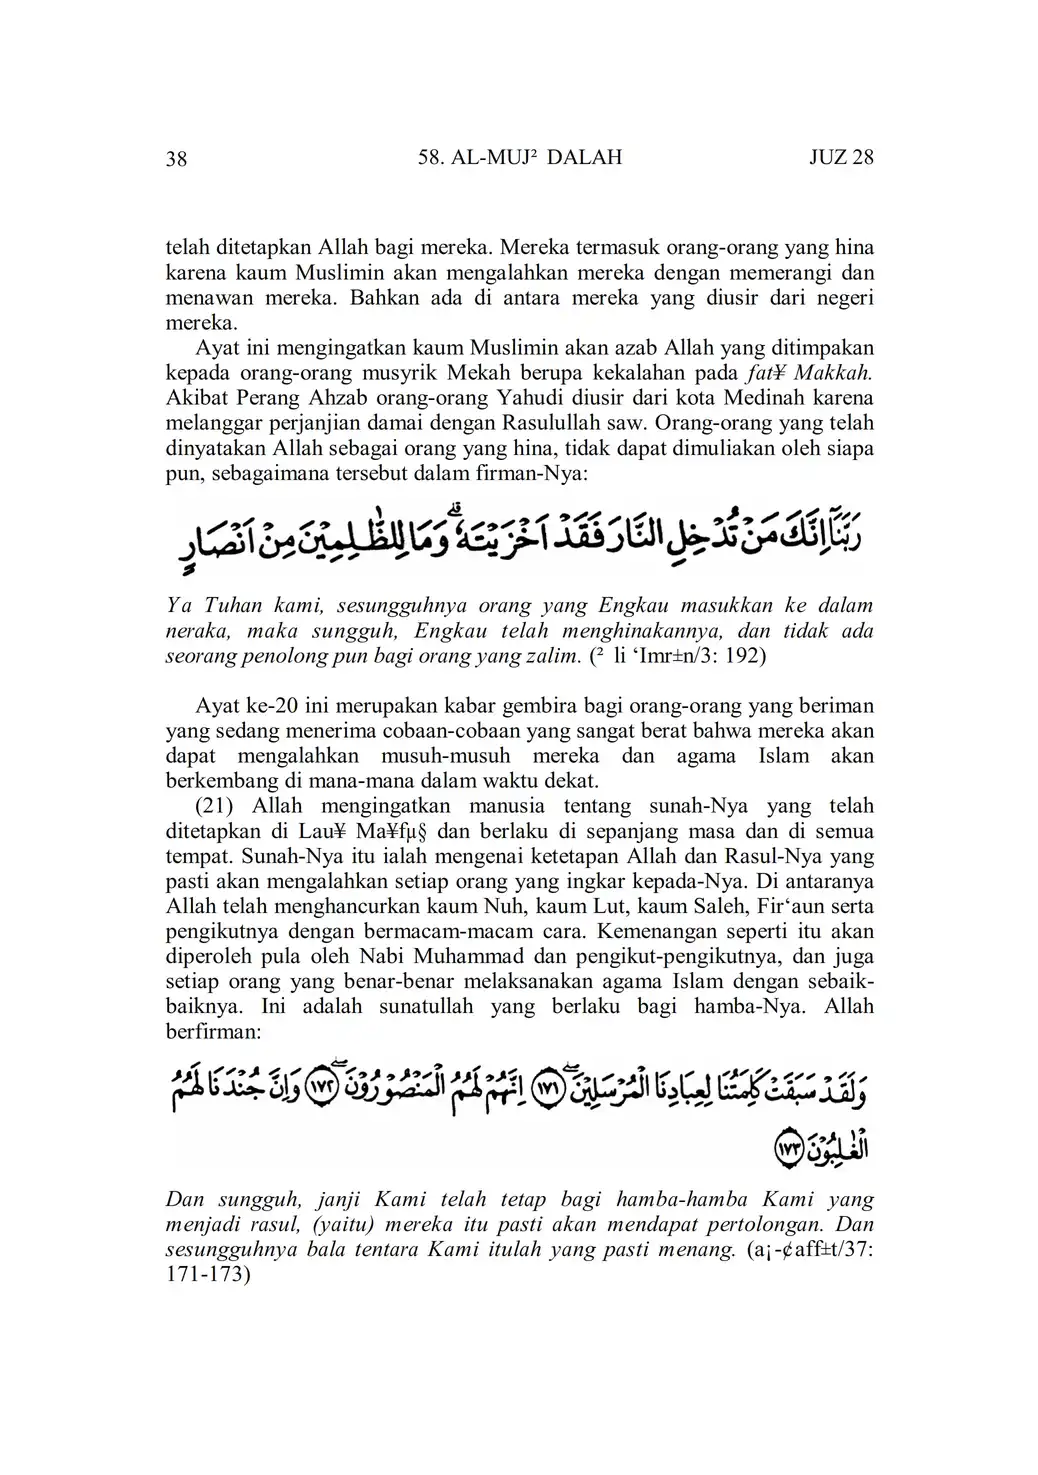 38 58. AL-MUJ² DALAH JUZ 28
telah ditetapkan Allah bagi mereka. Mereka termasuk orang-orang yang hina
karena kaum Muslimin akan mengalahkan mereka dengan memerangi dan
menawan mereka. Bahkan ada di antara mereka yang diusir dari negeri
mereka.
Ayat ini mengingatkan kaum Muslimin akan azab Allah yang ditimpakan
kepada orang-orang musyrik Mekah berupa kekalahan pada fat¥ Makkah.
Akibat Perang Ahzab orang-orang Yahudi diusir dari kota Medinah karena
melanggar perjanjian damai dengan Rasulullah saw. Orang-orang yang telah
dinyatakan Allah sebagai orang yang hina, tidak dapat dimuliakan oleh siapa
pun, sebagaimana tersebut dalam firman-Nya:
رَبَّنَآ اِنَّكَ مَنْ تُدْخِلِ النَّارَ فَقَدْ اَخْزَيْتَهٗ ۗ وَمَا لِلظّٰلِمِيْنَ مِنْ اَنْصَارٍ
Ya Tuhan kami, sesungguhnya orang yang Engkau masukkan ke dalam
neraka, maka sungguh, Engkau telah menghinakannya, dan tidak ada
seorang penolong pun bagi orang yang zalim. (² li ‘Imr±n/3: 192)
Ayat ke-20 ini merupakan kabar gembira bagi orang-orang yang beriman
yang sedang menerima cobaan-cobaan yang sangat berat bahwa mereka akan
dapat mengalahkan musuh-musuh mereka dan agama Islam akan
berkembang di mana-mana dalam waktu dekat.
(21) Allah mengingatkan manusia tentang sunah-Nya yang telah
ditetapkan di Lau¥ Ma¥fµ§ dan berlaku di sepanjang masa dan di semua
tempat. Sunah-Nya itu ialah mengenai ketetapan Allah dan Rasul-Nya yang
pasti akan mengalahkan setiap orang yang ingkar kepada-Nya. Di antaranya
Allah telah menghancurkan kaum Nuh, kaum Lut, kaum Saleh, Fir‘aun serta
pengikutnya dengan bermacam-macam cara. Kemenangan seperti itu akan
diperoleh pula oleh Nabi Muhammad dan pengikut-pengikutnya, dan juga
setiap orang yang benar-benar melaksanakan agama Islam dengan sebaik-
baiknya. Ini adalah sunatullah yang berlaku bagi hamba-Nya. Allah
berfirman:
وَلَقَدْ سَبَقَتْ كَلِمَتُنَا لِعِبَادِنَا الْمُرْسَلِيْنَ ۖ ١٧١ اِنَّهُمْ لَهُمُ الْمَنْصُوْرُوْنَ ۖ ١٧٢ وَاِنَّ جُنْدَنَا لَهُمُ
الْغٰلِبُوْنَ ١٧٣
Dan sungguh, janji Kami telah tetap bagi hamba-hamba Kami yang
menjadi rasul, (yaitu) mereka itu pasti akan mendapat pertolongan. Dan
sesungguhnya bala tentara Kami itulah yang pasti menang. (a¡-¢aff±t/37:
171-173)